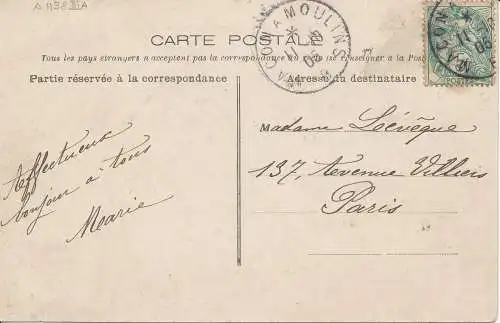 A 1138 III A
CARTE POSTALE
Tous les pays étrangers n'acceptent pas la correspondance au se renseigner à la Post
Partie réservée à la correspondance
Adresse du destinataire
MACON A MOULINS
MACON A
11
Affectueux
bonjour à tous
Marie
Madame Lévêque
137, Avenue Villiers
Paris